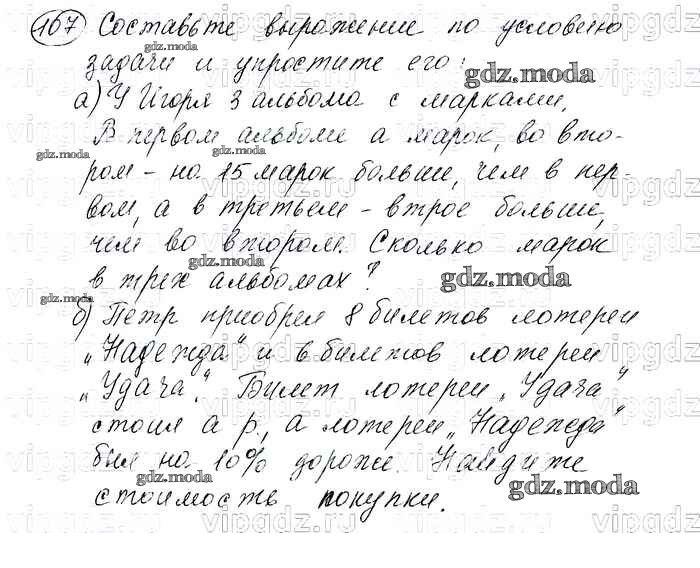 107 Составьте выражение по условию
задачи и упростите его:
а) У Игоря 3 альбома с марками.
В первом альбоме а марок, во вто-
ром - на 15 марок больше, чем в пер-
вом, а в третьем - втрое больше,
чем во втором. Сколько марок
в трех альбомах?
б) Петр приобрел 8 билетов лотереи
„Надежда“ и 6 билетов лотереи
„Удача“. Билет лотереи „Удача“
стоил а р., а лотереи „Надежда“
был на 10% дороже. Найдите
стоимость покупки.